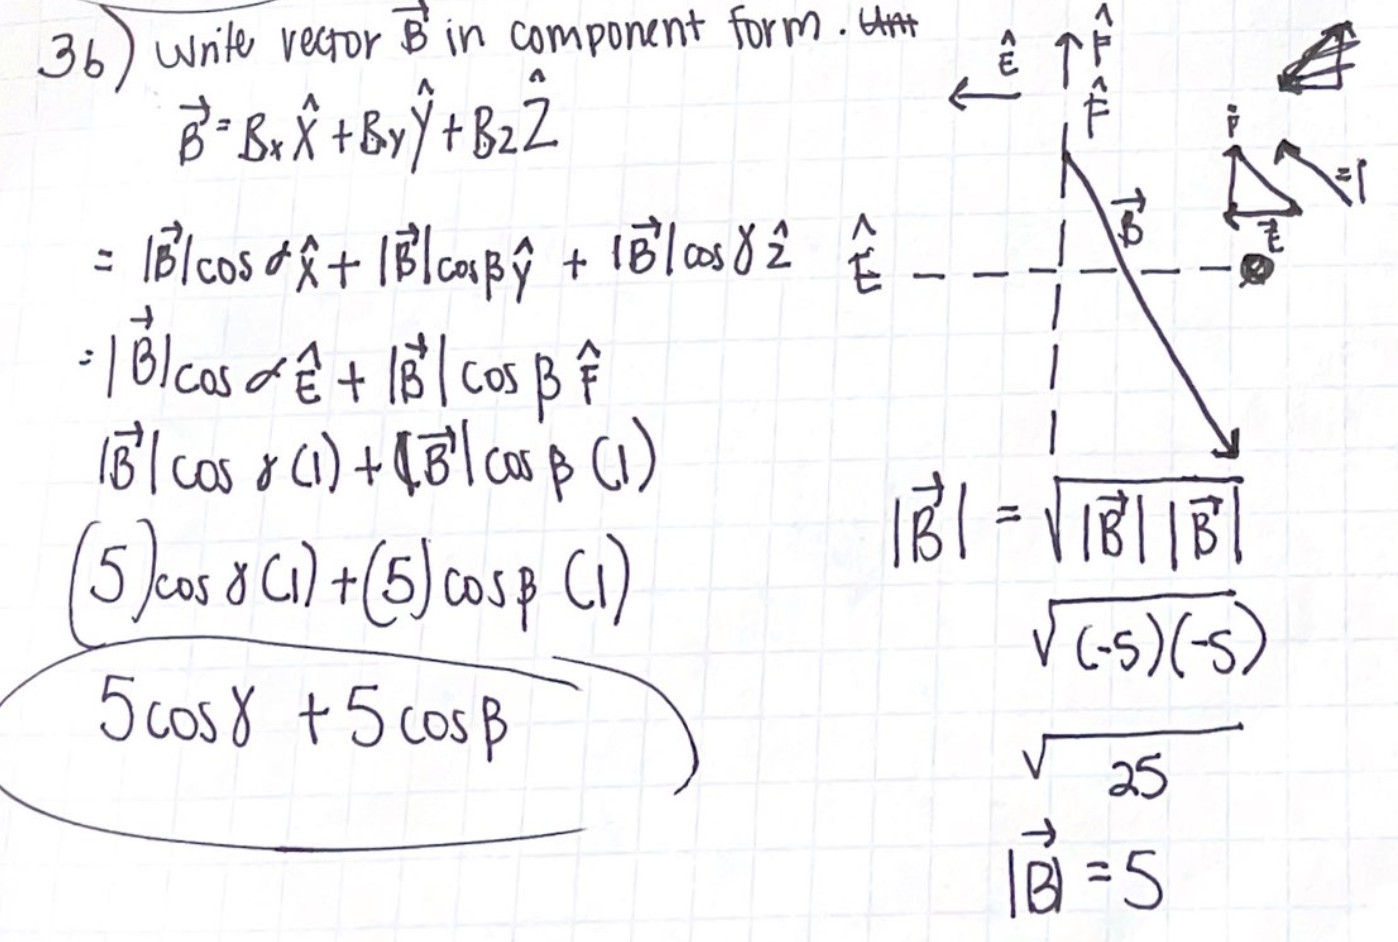 3b) Write vector B⃗ in component form.
B⃗ = Bx X̂ + By Ŷ + Bz Ẑ
= |B⃗| cos α X̂ + |B⃗| cos β ŷ + |B⃗| cos γ ẑ
= |B⃗| cos α Ê + |B⃗| cos β F̂
|B⃗| cos γ (1) + |B⃗| cos β (1)
(5) cos γ (1) + (5) cos β (1)
5 cos γ + 5 cos β
Ê
F̂
F̂
B⃗
Ê
= 1
|B⃗| = √|B⃗| |B⃗|
√(-5)(-5)
√25
|B⃗| = 5